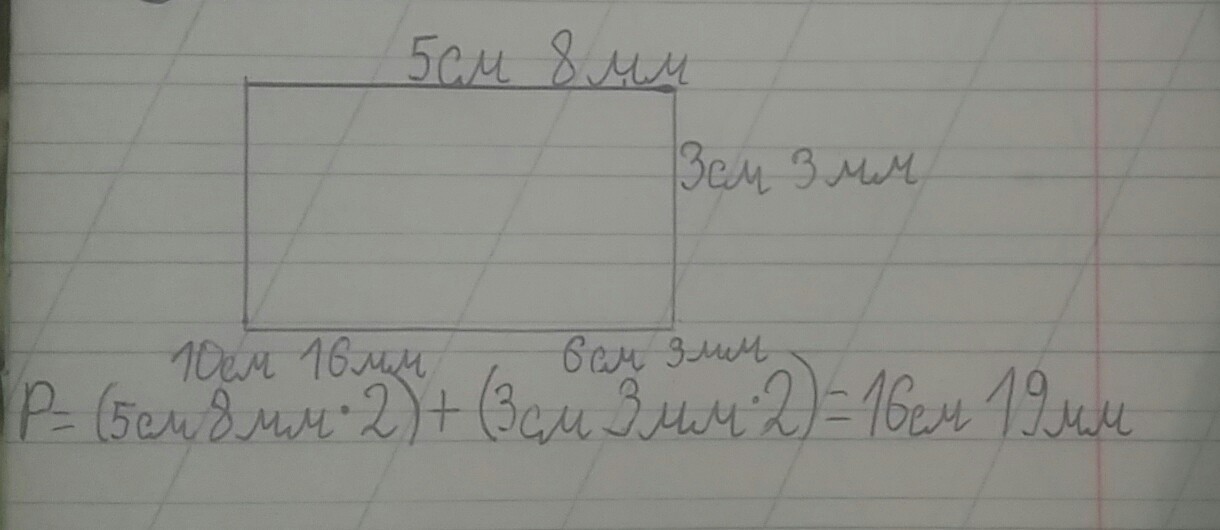 5см 8мм
3см 3мм
10см 16мм 6см 3мм
P= (5см 8мм·2)+(3см 3мм·2)=16см 19мм